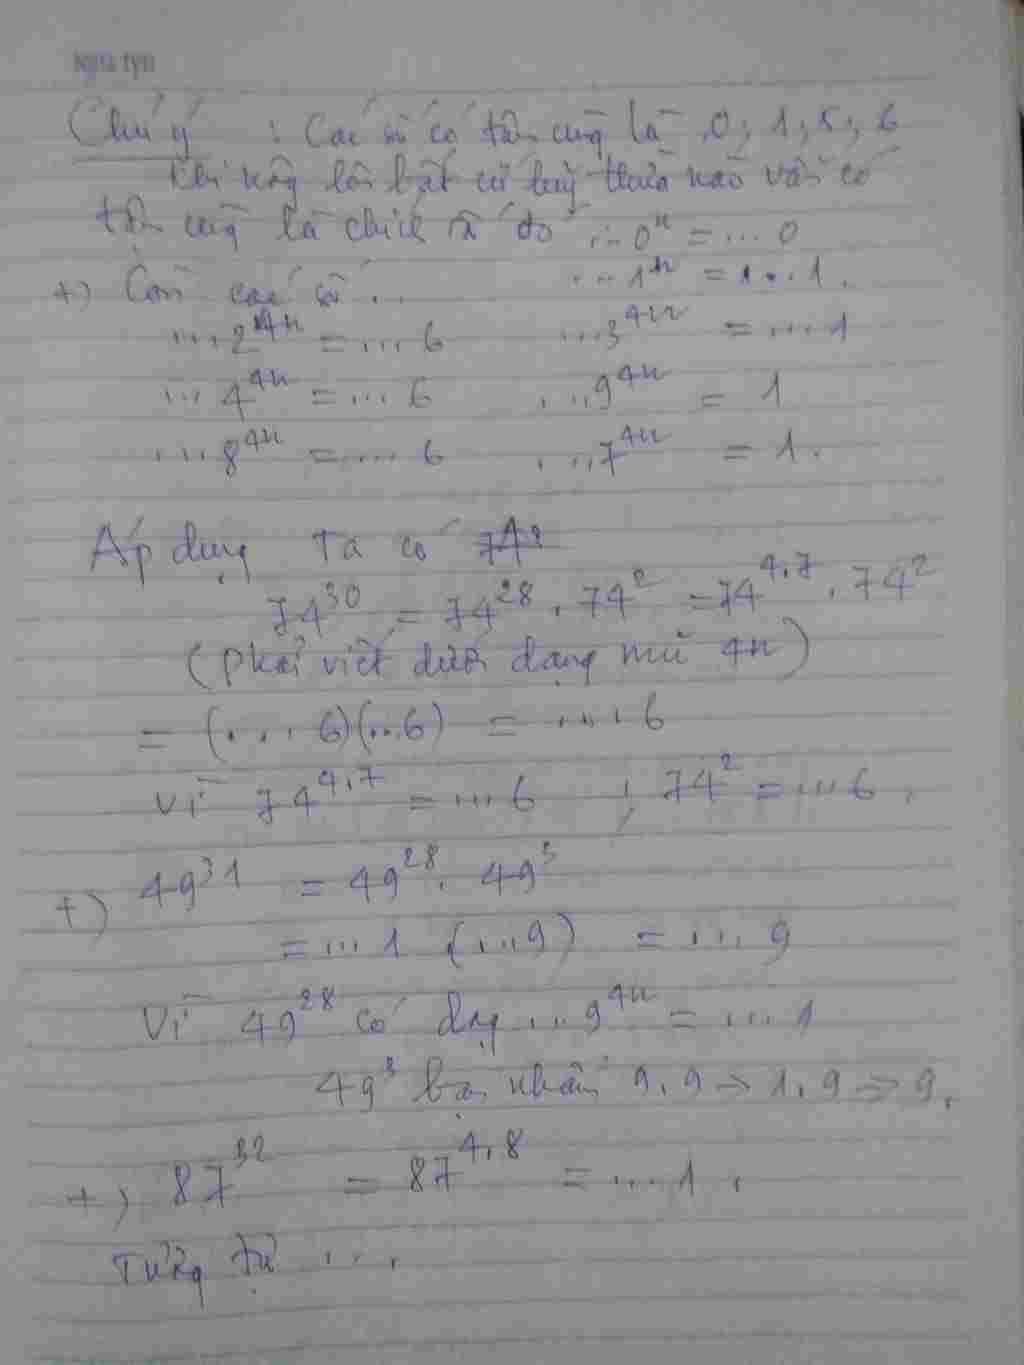 Chú ý : Các số có tận cùng là 0; 1; 5; 6
khi nâng lên bất cứ luỹ thừa nào vẫn có
tận cùng là chính số đó ...0ⁿ = ... 0
+) Còn các số ... ...1ⁿ = 1...1.
...2⁴ⁿ = ... 6 ...3⁴ⁿ = ... 1
...4⁴ⁿ = ... 6 ...9⁴ⁿ = 1
...8⁴ⁿ = ... 6 ...7⁴ⁿ = 1.
Áp dụng Ta có
74³⁰ = 74²⁸ . 74² = 74⁴·⁷ . 74²
(Phải viết dưới dạng mũ 4n)
= (... 6)(..6) = .... 6
Vì 74⁴·⁷ = ... 6 ; 74² = ... 6.
+) 49³¹ = 49²⁸. 49³
= ... 1 (...9) = ... 9
Vì 49²⁸ có dạng ...9⁴ⁿ = .... 1
49³ bạn nhân 9.9 → 1.9 → 9.
+) 87³² = 87⁴·⁸ = ... 1.
Tương tự ....